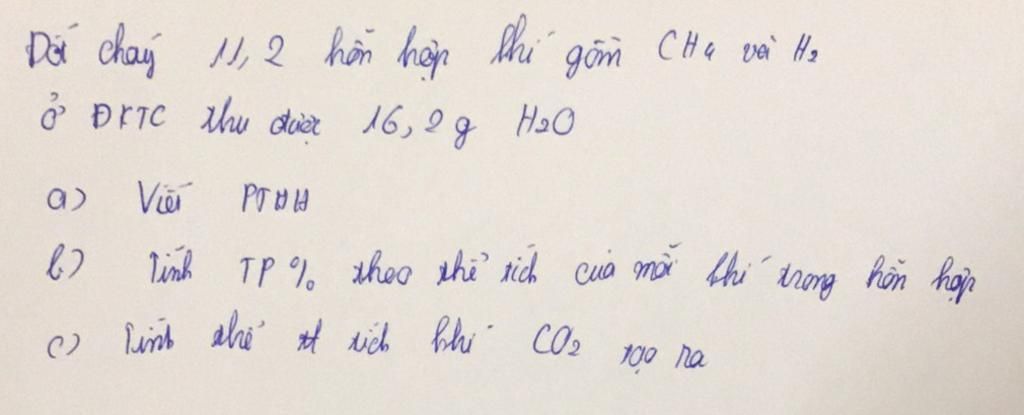 Đốt cháy 11,2 hỗn hợp khí gồm CH4 và H2
ở ĐKTC thu được 16,2g H2O
a) Viết PTHH
b) Tính TP% theo thể tích của mỗi khí trong hỗn hợp
c) Tính thể tích khí CO2 tạo ra